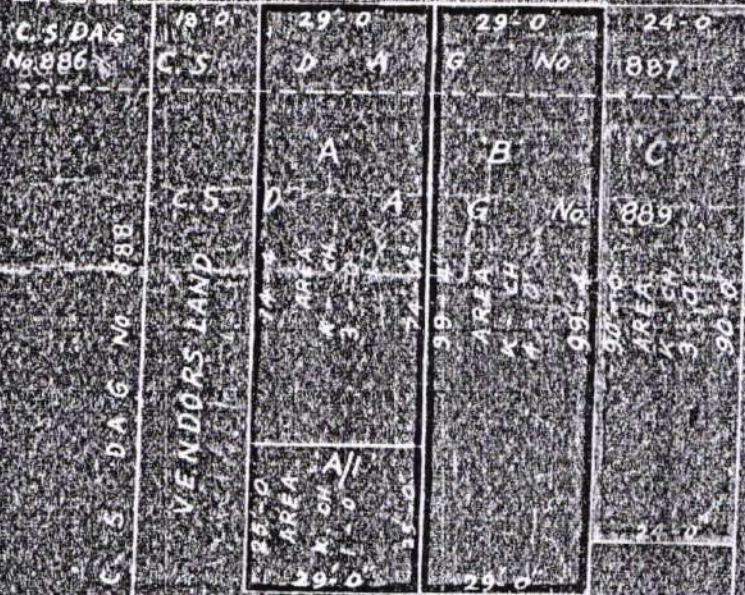 C.S. DAG
No. 886
18'-0"
29'-0"
29'-0"
24'-0
C.S. D A G No 887
A
B
C
C.S. D A G No. 889
C. S DAG No 888
VENDORS LAND
74'-4
AREA
K - CH
3 - 0
74'-4
99'-4
AREA
K - CH
4 - 0
99'-4
90'-0
AREA
K - CH
3 - 0
90'-0
A/1
25'-0
AREA
K - CH
1 - 0
25'-0
29'-0"
29'-0"
24'-0"